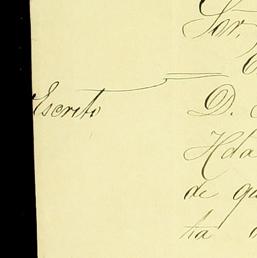 Sor.
Escrito
D.
Hda
de qu
ta